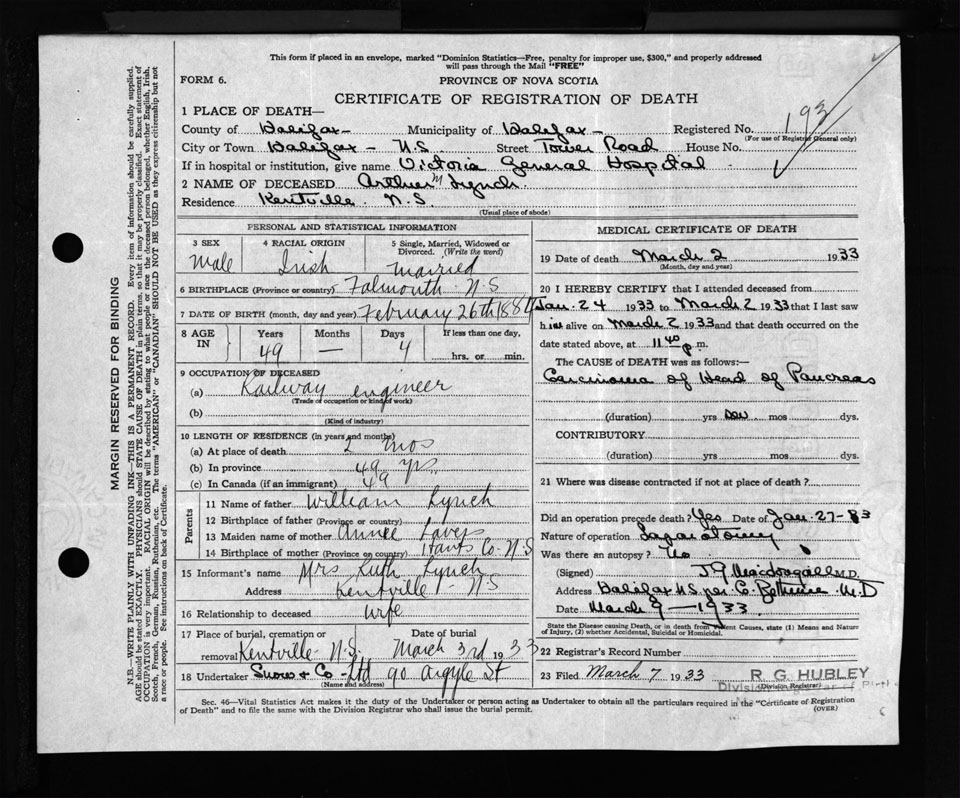 This form if placed in an envelope, marked "Dominion Statistics—Free, penalty for improper use, $300," and properly addressed
will pass through the Mail "FREE"
FORM 6.
PROVINCE OF NOVA SCOTIA
CERTIFICATE OF REGISTRATION OF DEATH
193
1 PLACE OF DEATH—
County of Halifax - Municipality of Halifax - Registered No.
(For use of Registrar General only)
City or Town Halifax - N.S. Street Tower Road House No.
If in hospital or institution, give name Victoria General Hospital
2 NAME OF DECEASED Arthur M Lynch.
Residence Kentville. N.S.
(Usual place of abode)
PERSONAL AND STATISTICAL INFORMATION
3 SEX 4 RACIAL ORIGIN 5 Single, Married, Widowed or Divorced. (Write the word)
Male Irish Married
6 BIRTHPLACE (Province or country) Falmouth N.S
7 DATE OF BIRTH (month, day and year) February 26th 1884
8 AGE IN Years Months Days If less than one day,
49 — 4 hrs. or min.
9 OCCUPATION OF DECEASED
(a) Railway engineer
(Trade of occupation or kind of work)
(b)
(Kind of industry)
10 LENGTH OF RESIDENCE (in years and months)
(a) At place of death 2 mos
(b) In province 49 yrs.
(c) In Canada (if an immigrant) 49
Parents
11 Name of father William Lynch
12 Birthplace of father (Province or country)
13 Maiden name of mother Annee
14 Birthplace of mother (Province on country) Hants Co. N.S
15 Informant's name Mrs Ruth Lynch
Address Kentville N.S
16 Relationship to deceased wife
17 Place of burial, cremation or removal Kentville N.S. Date of burial March 3rd 1933
18 Undertaker Snow & Co - Ltd 90 Argyle St
(Name and address)
MEDICAL CERTIFICATE OF DEATH
19 Date of death March 2 1933
(Month, day and year)
20 I HEREBY CERTIFY that I attended deceased from
Jan. 24 1933 to March 2 1933 that I last saw
h im alive on March 2 1933 and that death occurred on the
date stated above, at 11 40 p m.
The CAUSE OF DEATH was as follows:—
Carcinoma of Head of Pancreas
(duration) yrs mos dys.
CONTRIBUTORY
(duration) yrs mos dys.
21 Where was disease contracted if not at place of death?
Did an operation precede death? Yes Date of Jan. 27-33
Nature of operation Laparotomy
Was there an autopsy? No
(Signed) M.D.
Address Halifax N.S. per M.D
Date March 9 — 1933
State the Disease causing Death, or in death from Violent Causes, state (1) Means and Nature
of Injury, (2) whether Accidental, Suicidal or Homicidal.
22 Registrar's Record Number
23 Filed March 7 1933 R. G. HUBLEY
(Division Registrar)
Sec. 46—Vital Statistics Act makes it the duty of the Undertaker or person acting as Undertaker to obtain all the particulars required in the "Certificate of Registration
of Death" and to file the same with the Division Registrar who shall issue the burial permit.
(OVER)
MARGIN RESERVED FOR BINDING
N.B.—WRITE PLAINLY WITH UNFADING INK—THIS IS A PERMANENT RECORD. Every item of information should be carefully supplied.
AGE should be stated EXACTLY. PHYSICIANS should STATE CAUSE OF DEATH in plain terms, so that it may be properly classified. Exact statement of
OCCUPATION is very important. RACIAL ORIGIN will be described by stating to what people or race the deceased person belonged, whether English, Irish,
Scotch, French, German, Russian, Ruthenian, etc. The terms "AMERICAN" or "CANADIAN" SHOULD NOT BE USED as they express citizenship but not
a race or people. See instructions on back of Certificate.